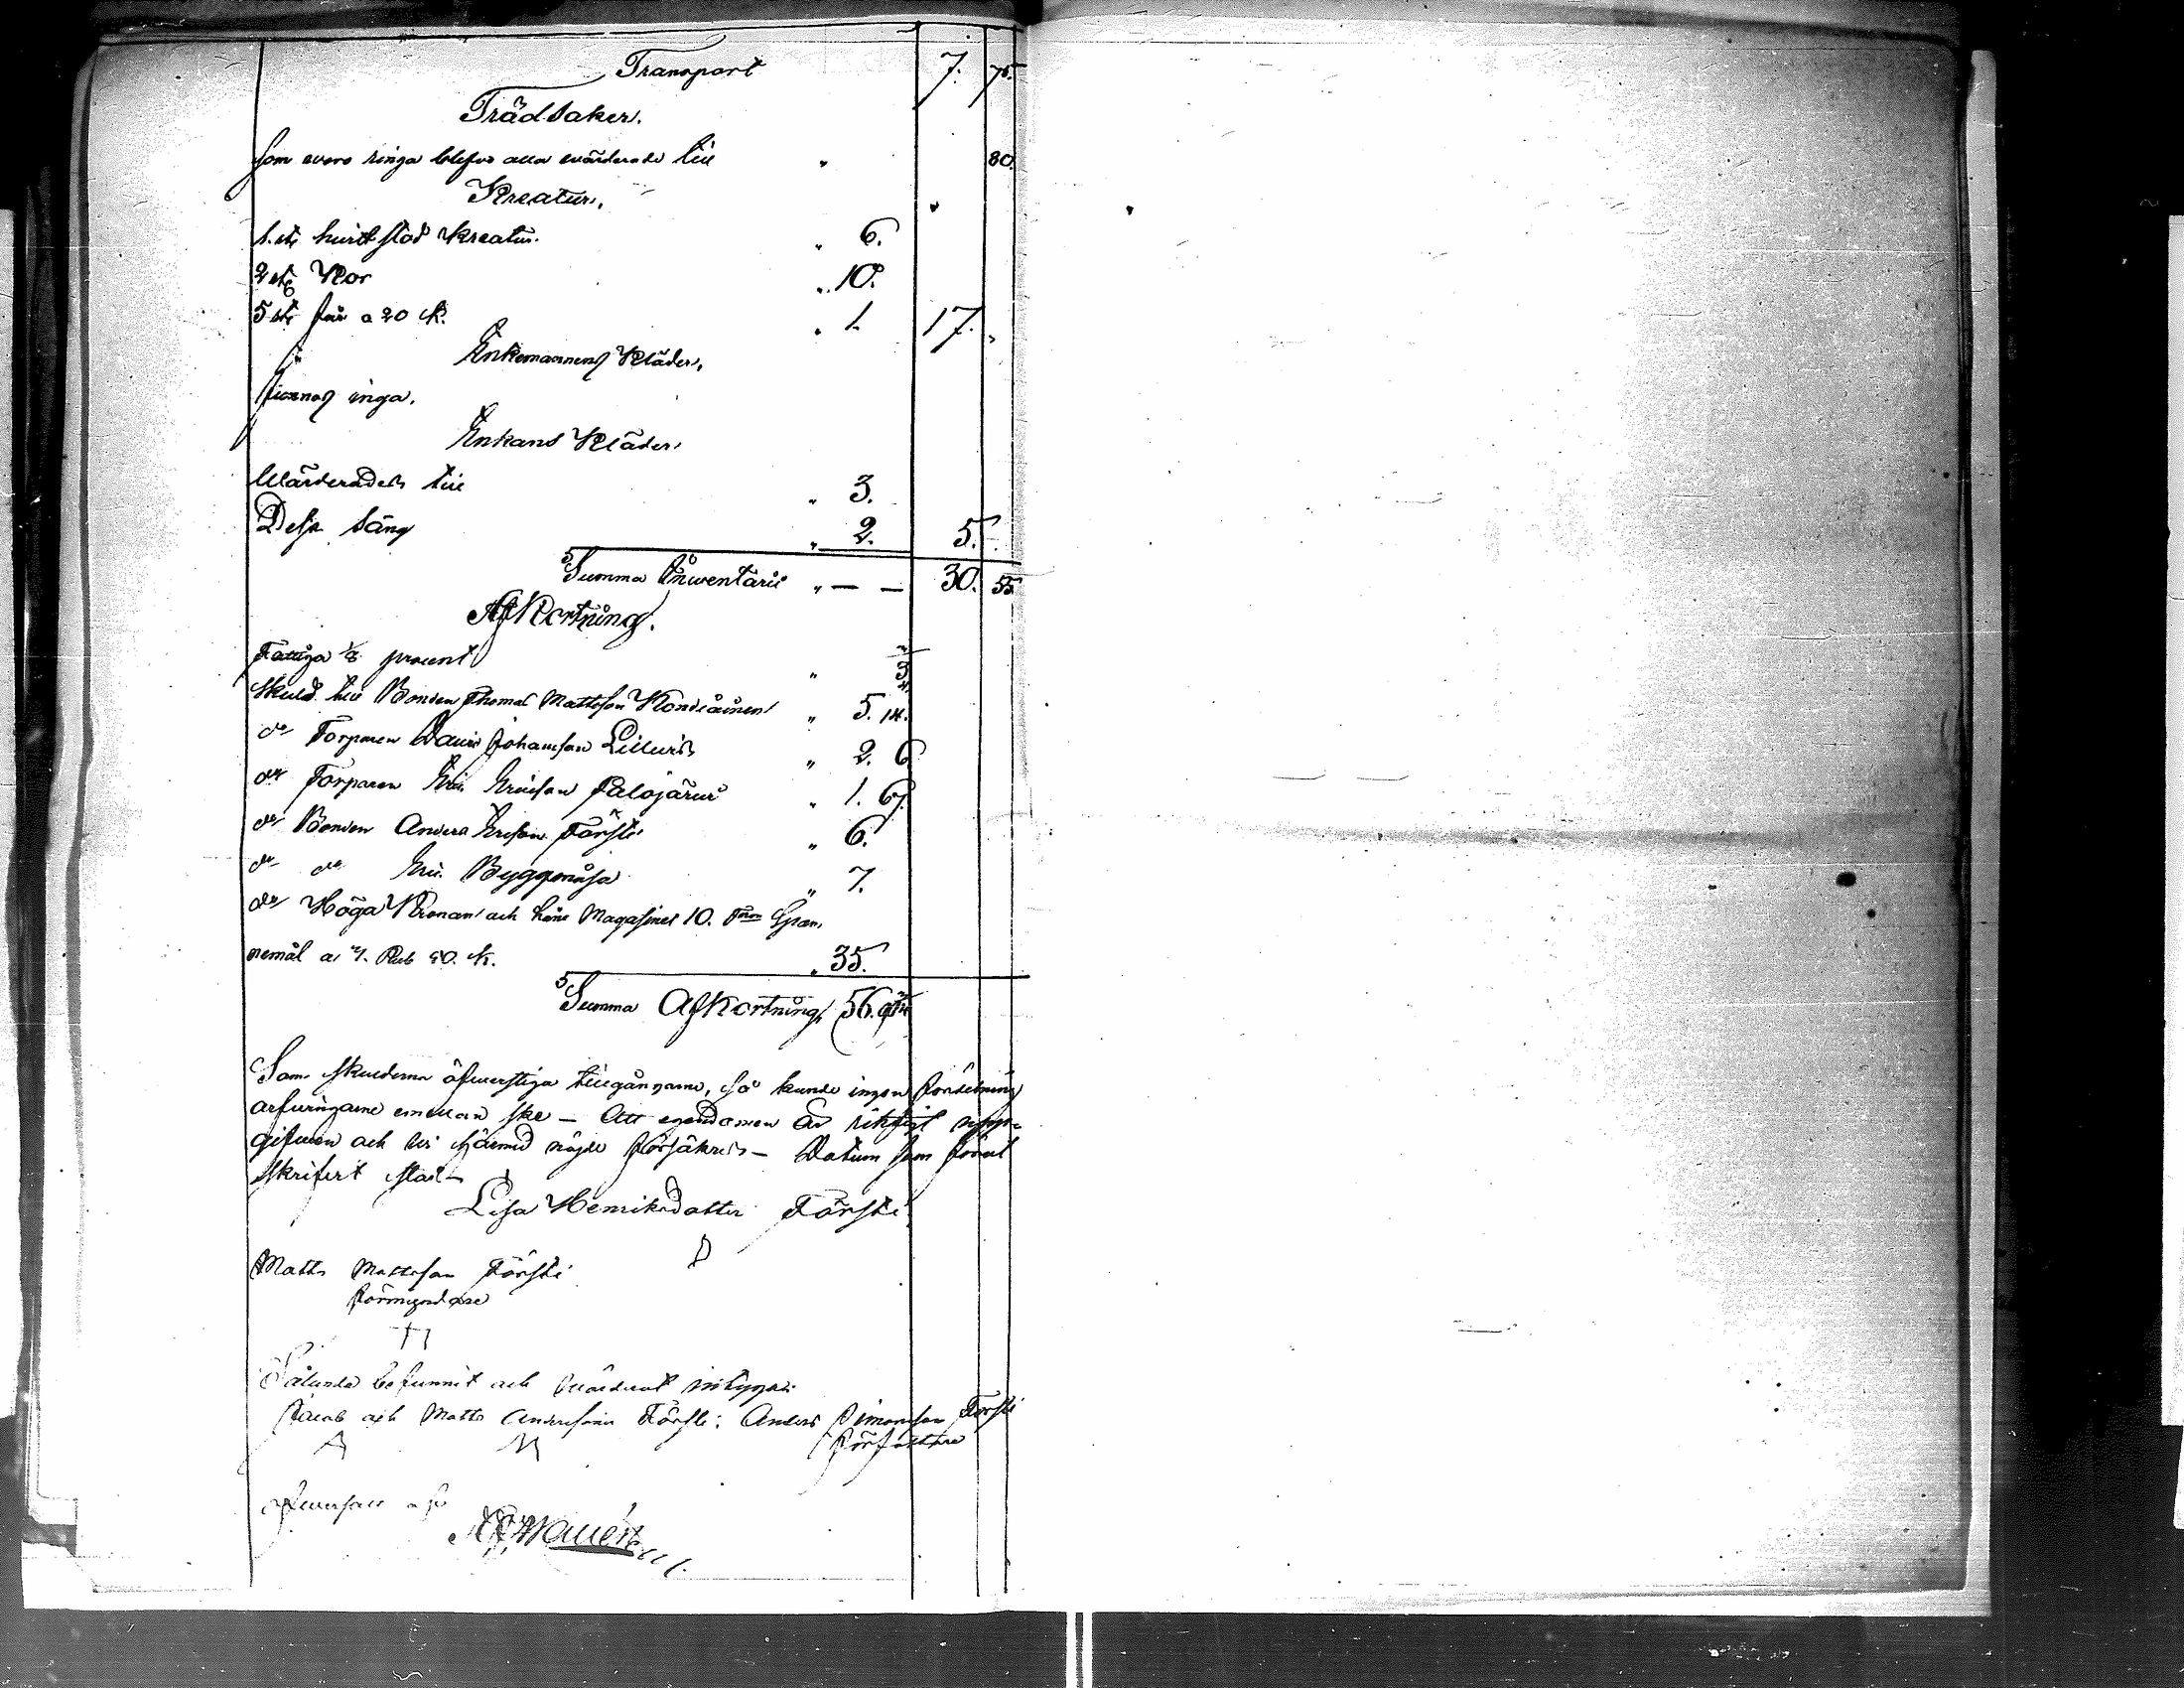 Transport 7. 75.
Trädsaker.
som woro ringa blefvo alla wärderade till " 80.
Kreatur.
1. st. stod Kreatur. " 6.
2 st. Kor " 10.
5 st. får a 20 k. " 1. 17. "
Enkemannens Kläder.
finnas inga.
Enkans Kläder
Wärderades till " 3.
Dess säng " 2. 5.
Summa Inwentarii " — — 30. 55
Afkortning.
Fattiga 1/8 procent " 3
Skuld till Bonden Thomas Mattsson " 5. 14.
do Torparen David Johansson " 2. 6
do Torparen Eric Ericsson Palojärvi " 1. 67.
do Bonden Anders Ersson Försti " 6.
do do Eric Byggmäsa " 7.
do Höga Kronan och hänes Magasinet 10. Tnr Span,
nemål a 3. Rub 50. k. " 35.
Summa Afkortning 56.
Som skulderna öfwerstiga tillgångarne, så kunde ingen fördelning
arfwingarne emellan ske — Att egendomen är riktigt upp-
gifwen och wi härmed nöjde försäkras — Datum som förut
skrifwit står
Lisa Henriksdotter Försti
Matts Mattsson Försti
förmyndare
Sålunda befunnit och wärderat intyga:
Jacob och Matts Anderssöner Försti: Anders Simonsson Försti
författare